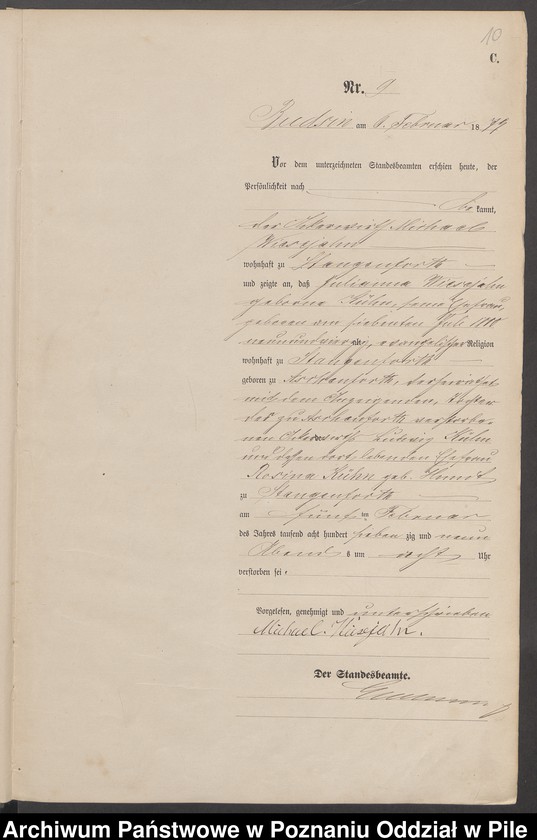 10
C.
Nr. 9
Budsin am 6. Februar 1879
Vor dem unterzeichneten Standesbeamten erschien heute, der
Persönlichkeit nach
be kannt,
der Ackerwirth Michael
Wiesejahn
wohnhaft zu Stangenfurth
und zeigte an, daß Julianna Wiesejahn
geborene Kühn, seine Ehefrau,
geboren am siebenten Juli 18
alt, evangelischer Religion
wohnhaft zu Stangenfurth
geboren zu verheirathet
mit dem Anzeigenden, Tochter
des zu verstorbe-
nen Ackerwirths Ludwig Kühn
und dessen dort lebenden Ehefrau
Rosina Kühn geb.
zu Stangenfurth
am fünf ten Februar
des Jahres tausend acht hundert sieben zig und neun
Abend s um acht Uhr
verstorben sei.
Vorgelesen, genehmigt und unterschrieben
Michael Wiesejahn.
Der Standesbeamte.
Archiwum Państwowe w Poznaniu Oddział w Pile